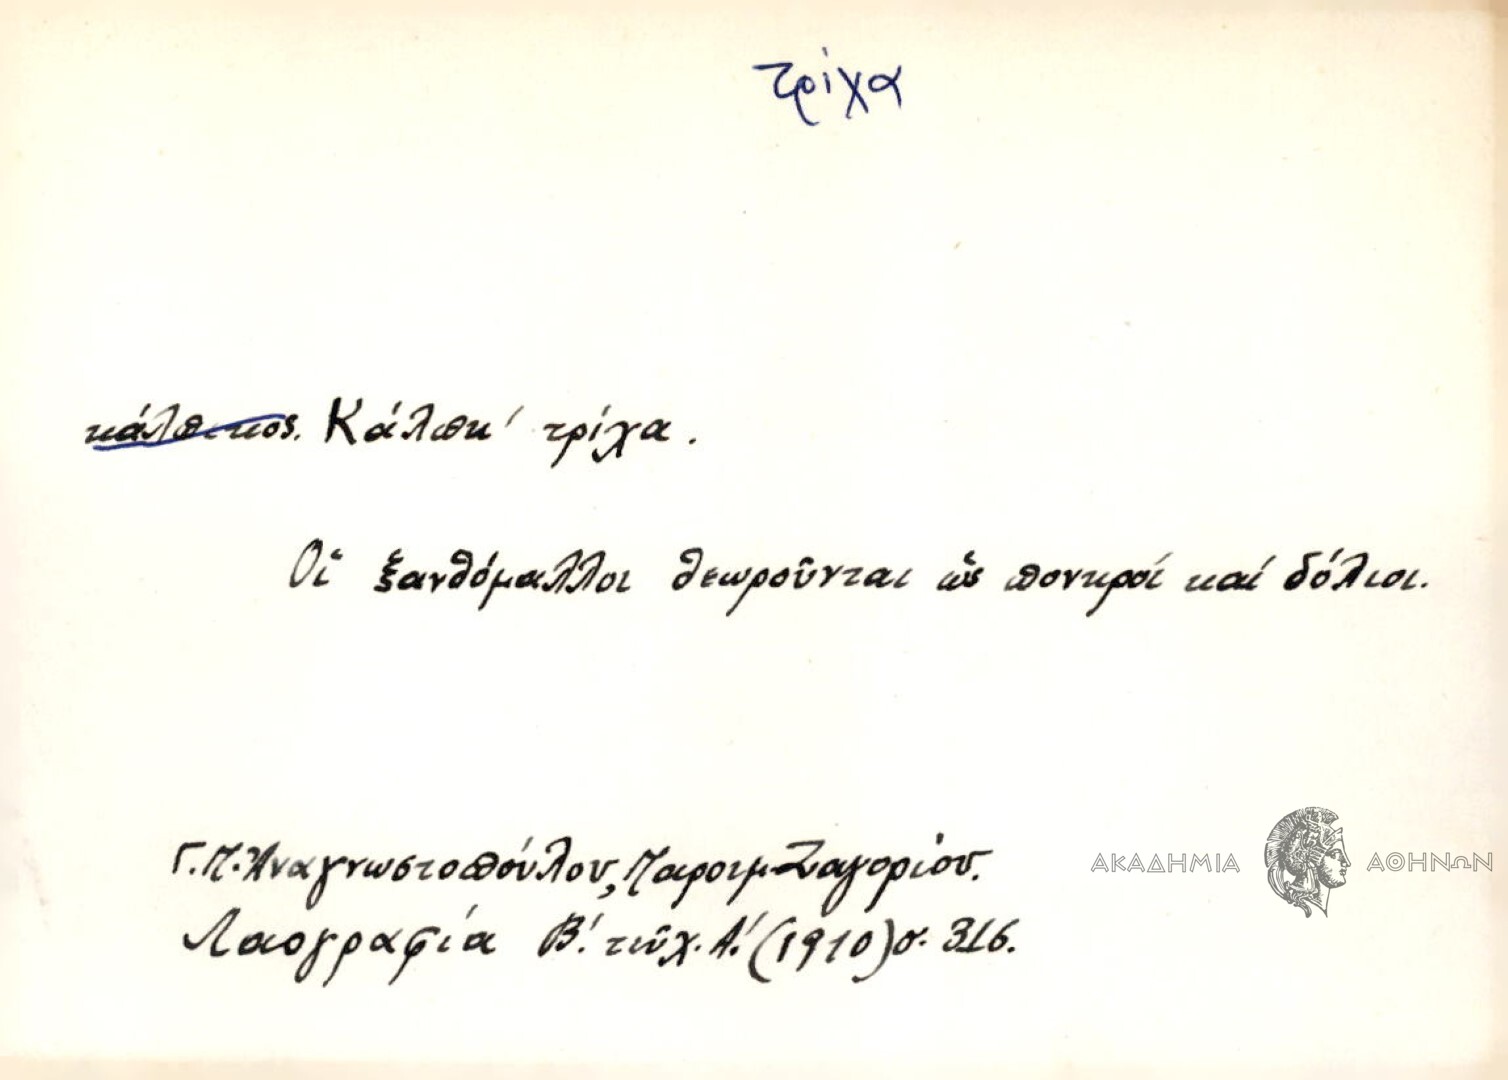 τρίχα
κάλπικος. Κάλπικ' τρίχα.
Οἱ ξανθόμαλλοι θεωροῦνται ὡς πονηροί καί δόλιοι.
Γ.Π. Ἀναγνωστοπούλου, Παροιμ. Ζαγορίου.
Λαογραφία Β΄. τεῦχ. Α΄. (1910) σ. 316.
ΑΚΑΔΗΜΙΑ ΑΘΗΝΩΝ